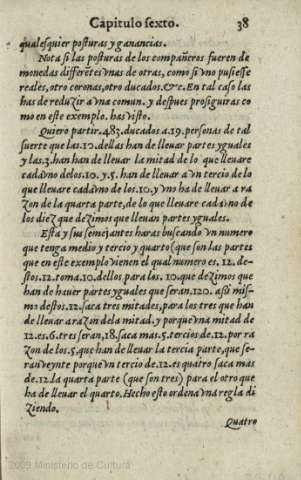 Capitulo sexto. 38
qualesquier posturas y ganancias.
Nota si las posturas de los compañeros fueren de
monedas differētes vnas de otras, como si vno pusiesse
reales, otro coronas, otro ducados. &c. En tal caso las
has de reduzir a vna comun. y despues prosiguiras co
mo en este exemplo. has visto.
Quiero partir. 483. ducados a. 19. personas de tal
suerte que las. 10. dellas han de lleuar partes yguales
y las. 3. han han de lleuar la mitad de lo que lleuare
cada vno de los. 10. y. 5. han de lleuar a vn tercio de lo
que lleuare cada vno de los. 10. y vno ha de lleuar a ra
zon de la quarta parte, de lo que lleuare cada vno de
los diez que dezimos que lleuan partes yguales.
Esta y sus semejantes haras buscando vn numero
que tenga medio y tercio y quarto (que son las partes
que en este exemplo vienen el qual numero es. 12. de-
stos. 12. toma. 10. dellos para los. 10. que dezimos que
han de hauer partes yguales que seran. 120. assi mis-
mo destos. 12. saca tres mitades, para los tres que han
de lleuar a razon dela mitad. y porque vna mitad de
12. es. 6. tres seran, 18. saca mas. 5. tercios de. 12. por ra
zon de los. 5. que han de lleuar la tercia parte, que se-
ran veynte porque vn tercio de. 12. es quatro saca mas
de. 12. la quarta parte (que son tres) para el otro que
ha de lleuar el quarto. Hecho esto ordena vna regla di
ziendo.
Quatro
2009 Ministerio de Cultura